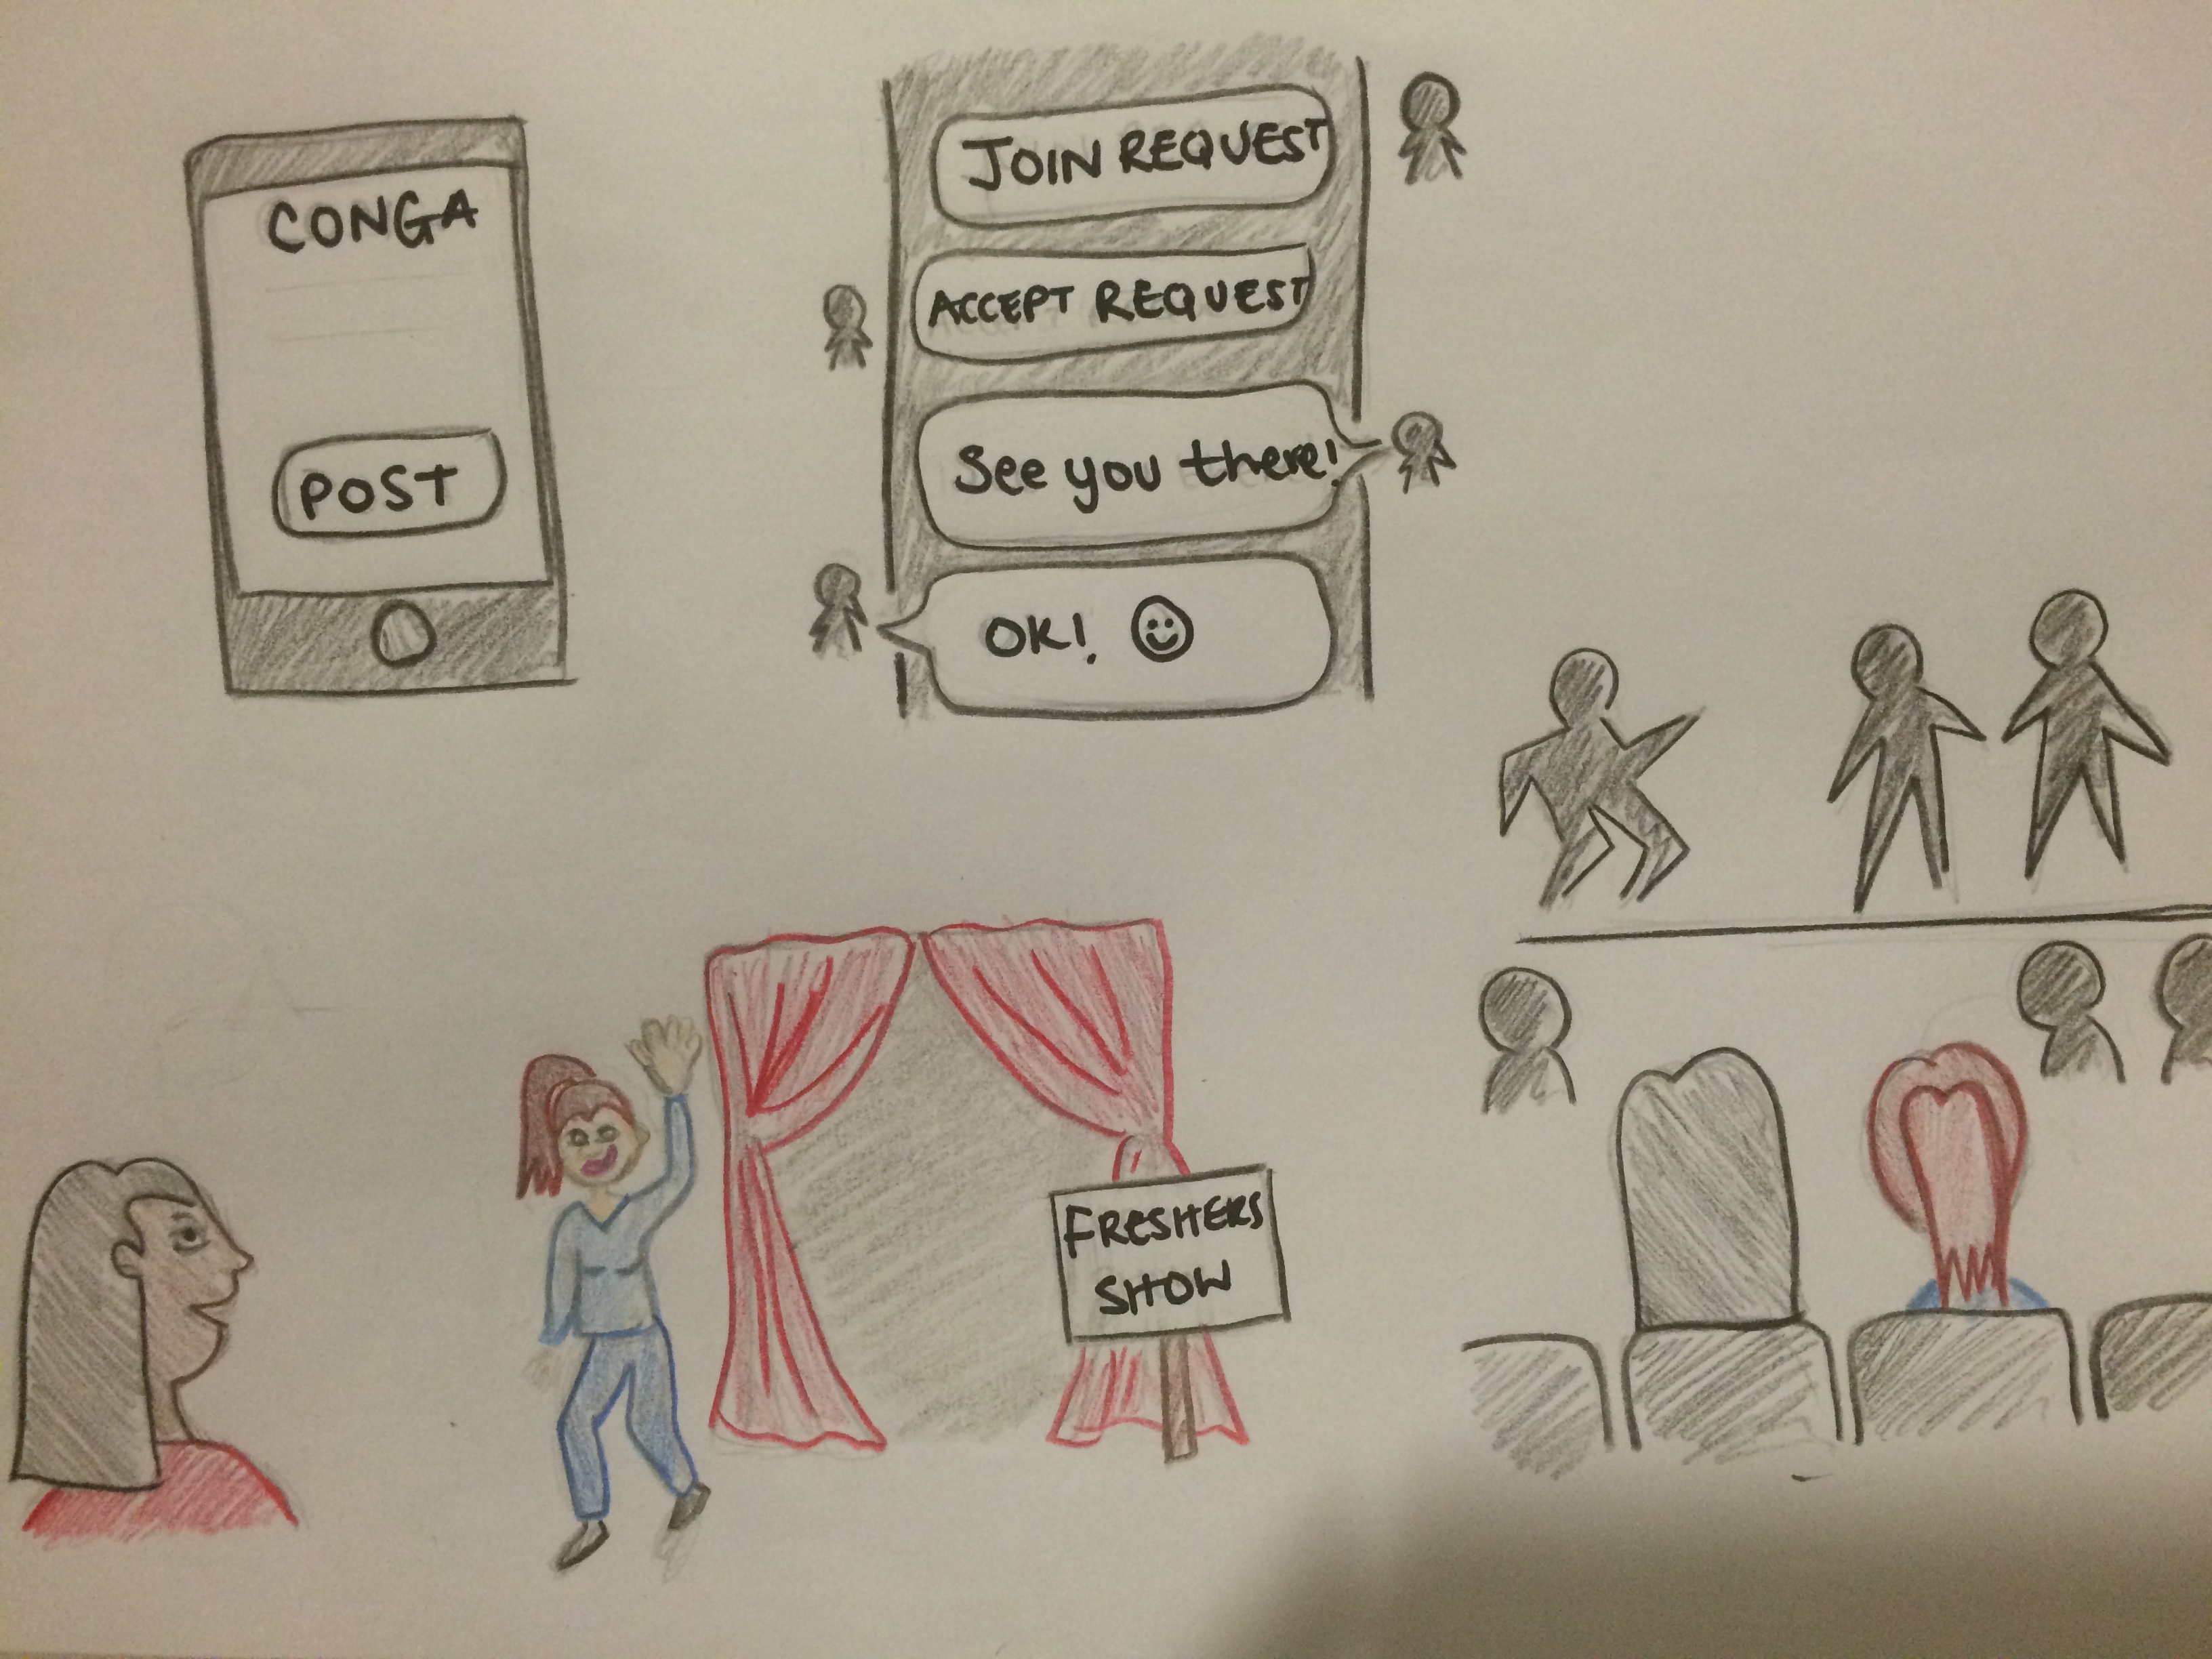 CONGA
POST
JOIN REQUEST
ACCEPT REQUEST
See you there!
OK!
FRESHERS
SHOW